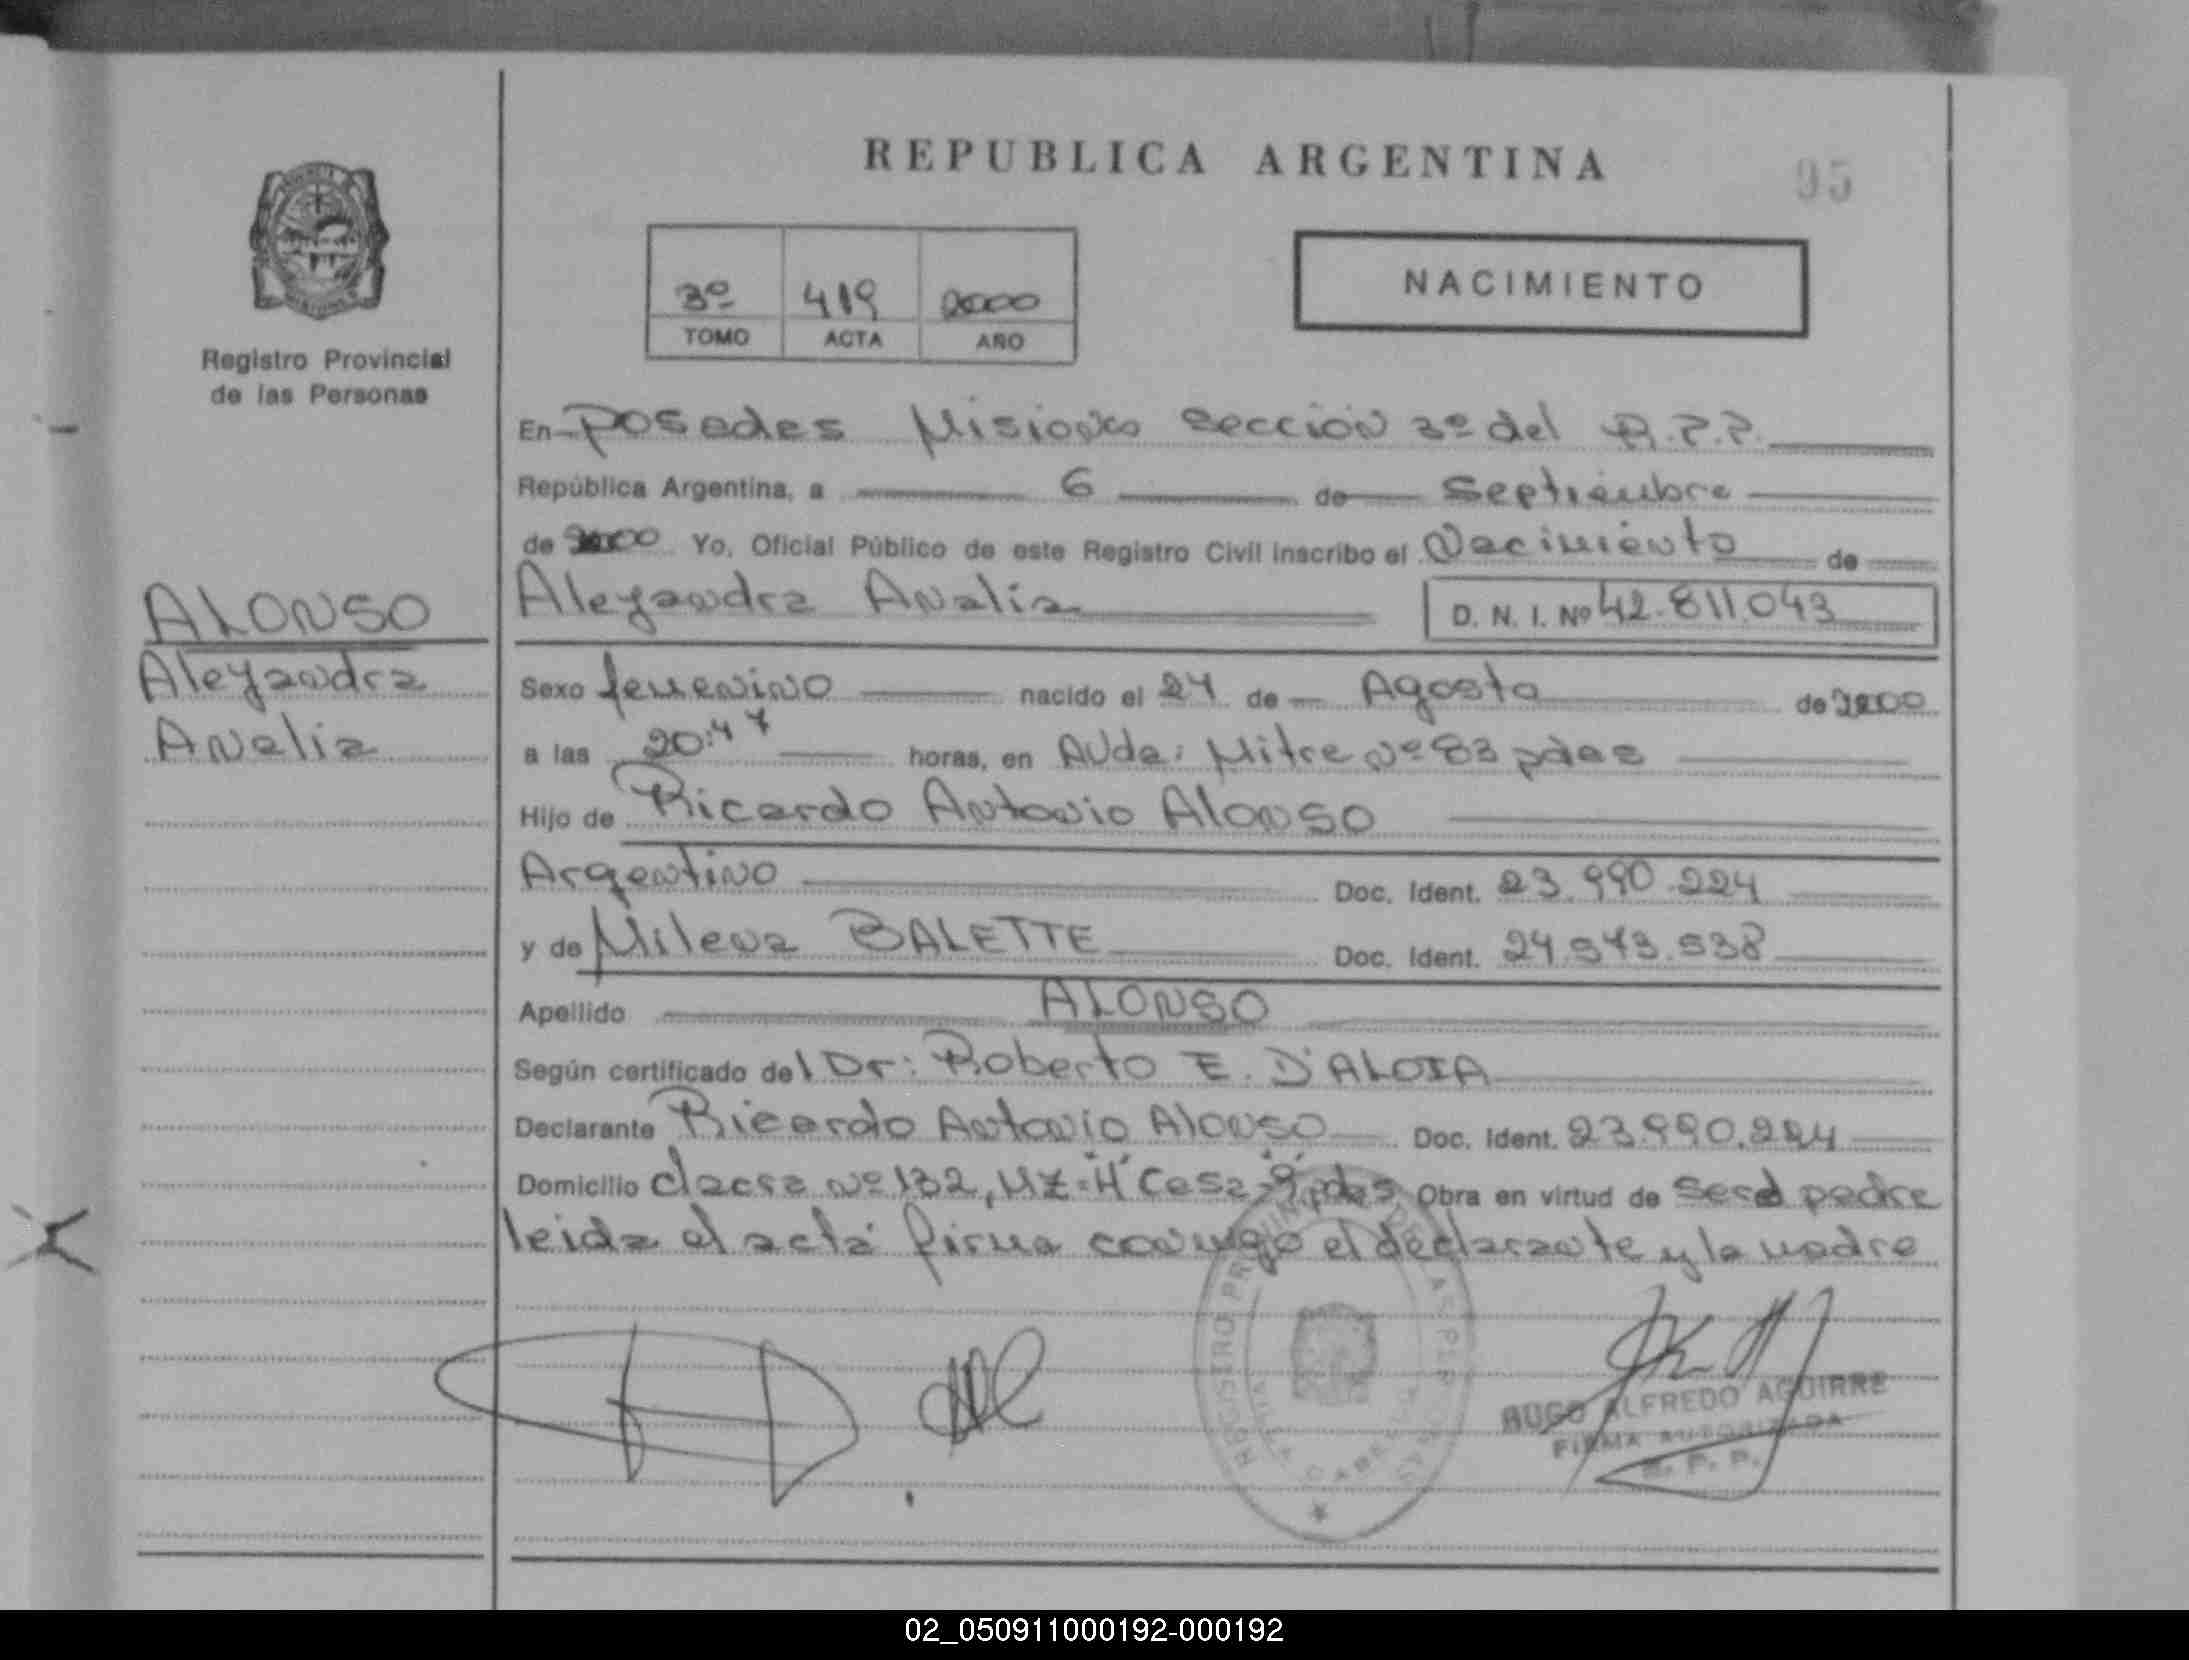 REPUBLICA ARGENTINA
95
3º 419 2000
TOMO ACTA AÑO
NACIMIENTO
Registro Provincial
de las Personas
En Posadas Misiones Sección 3º del R.P.P.
República Argentina, a 6 de Septiembre
de 2000 Yo, Oficial Público de este Registro Civil inscribo el Nacimiento de
Aleyandra Analia D. N. I. Nº 42.811.043
ALONSO
Aleyandra
Analia
Sexo femenino nacido el 24 de Agosto de 2000
a las 20:47 horas, en Avda: Mitre Nº 83 pdas
Hijo de Ricardo Antonio Alonso
Argentino Doc. Ident. 23.990.224
y de Milena BALETTE Doc. Ident. 24.573.538
Apellido ALONSO
Según certificado del Dr: Roberto E. D'ALOIA
Declarante Ricardo Antonio Alonso Doc. Ident. 23.990.224
Domicilio chacra Nº 132, MZ="H" Casa "9" pdas Obra en virtud de ser el padre
leida el acta firma conmigo el declarante y la madre
REGISTRO PROVINCIAL DE LAS PERSONAS
HUGO ALFREDO AGUIRRE
FIRMA AUTORIZADA
R. P. P.
02_050911000192-000192